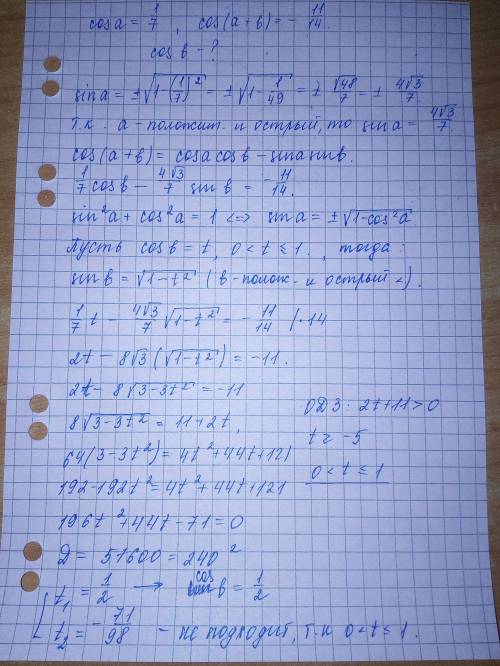 cos a = 1/7 , cos(a+b) = - 11/14.
cos b - ?
sin a = ±√(1-(1/7)²) = ±√(1-1/49) = ± √48/7 = ± 4√3/7.
Т.к. a - положит. и острый, то sin a = 4√3/7
cos(a+b) = cos a cos b - sin a sin b.
1/7 cos b - 4√3/7 sin b = - 11/14.
sin²a + cos²a = 1 <=> sin a = ±√(1-cos²a)
Пусть cos b = t, 0 < t ≤ 1. , тогда:
sin b = √(1-t²) (b - полож. и острый <).
1/7 t - 4√3/7 √(1-t²) = - 11/14 /·14
2t - 8√3 (√(1-t²)) = -11.
2t - 8√(3-3t²) = -11
8√(3-3t²) = 11+2t,
ОДЗ: 2t+11>0
64(3-3t²) = 4t²+44t+121
t ≥ -5
192-192t² = 4t²+44t+121
0 < t ≤ 1
196t²+44t-71=0
D = 57600 = 240²
t₁ = 1/2 → cos b = 1/2
t₂ = - 71/98 - не подходит, т.к 0<t≤1.